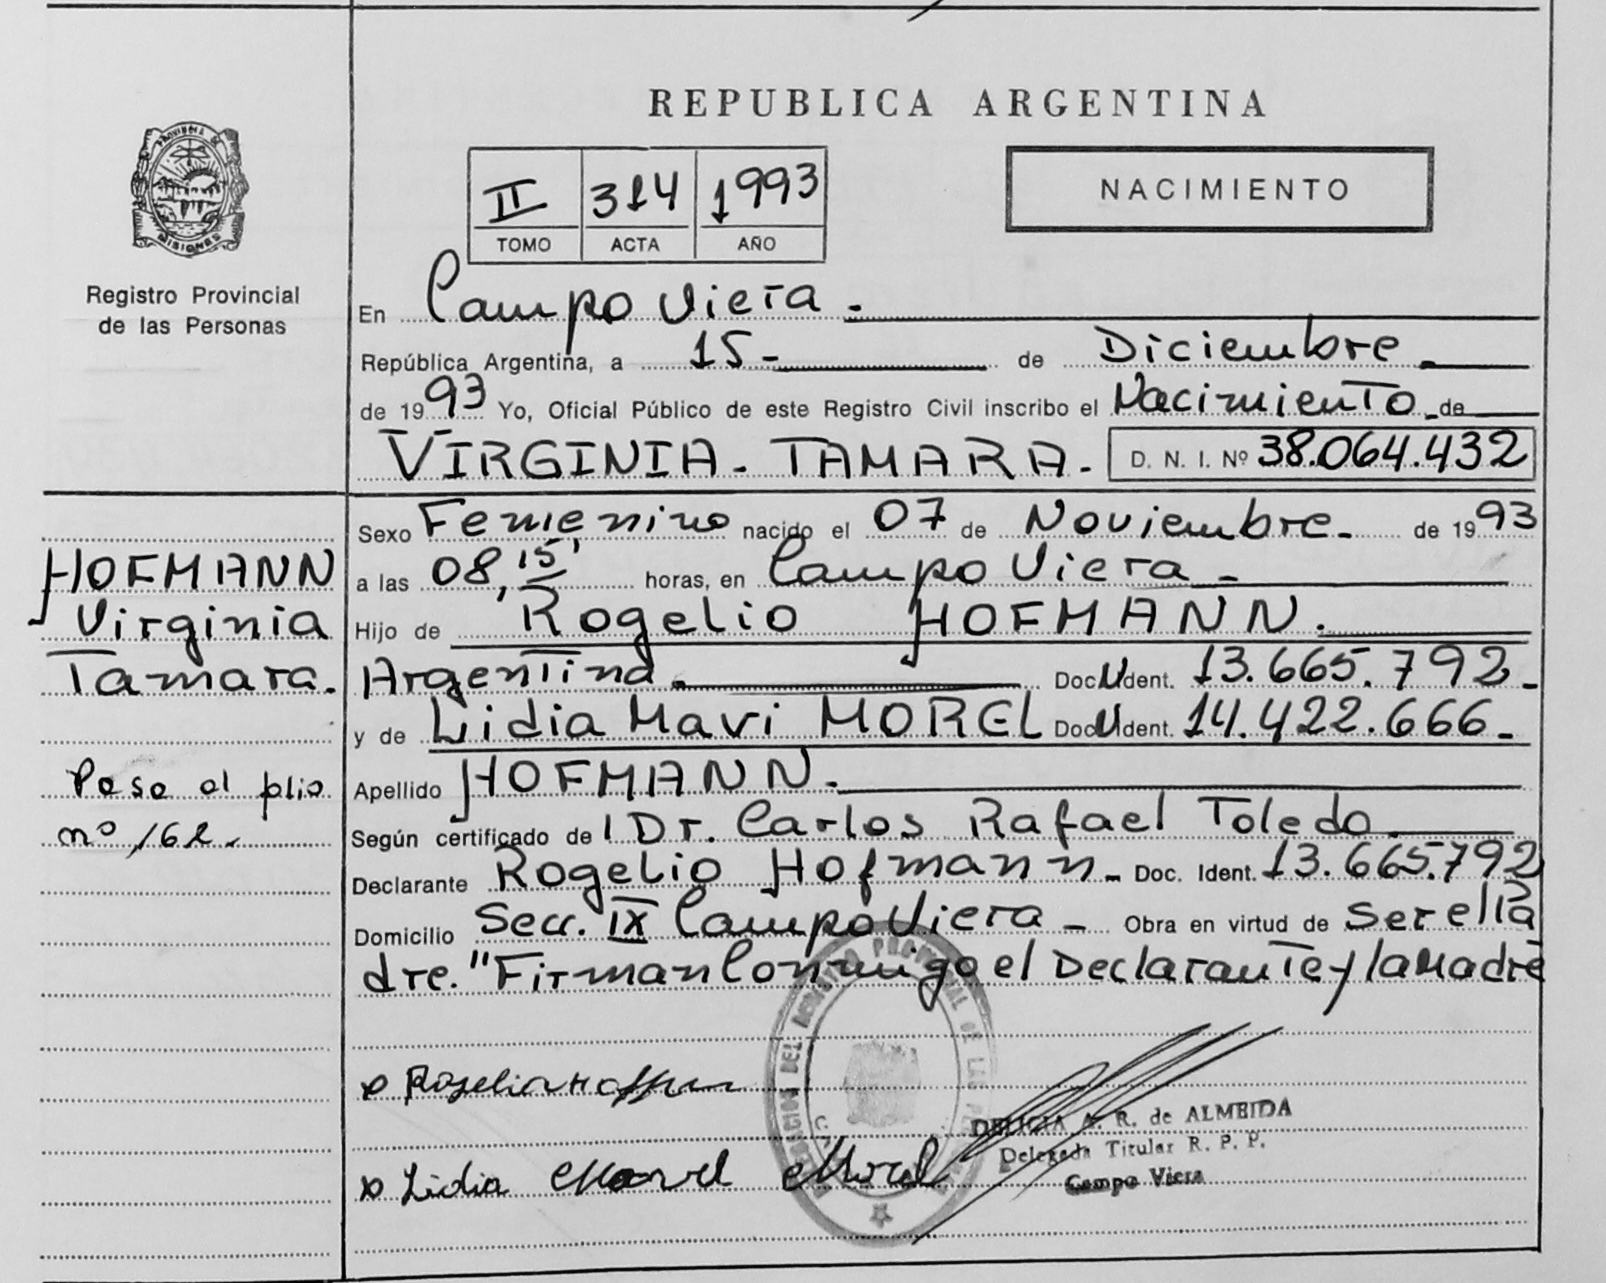 REPUBLICA ARGENTINA
PROVINCIA DE
MISIONES
Registro Provincial
de las Personas
II 314 1993
TOMO ACTA AÑO
NACIMIENTO
En Campo Viera.
República Argentina, a 15 - de Diciembre
de 1993 Yo, Oficial Público de este Registro Civil inscribo el Nacimiento de
VIRGINIA - TAMARA - D. N. I. Nº 38.064.432
Sexo Femenino nacido el 07 de Noviembre. de 1993
a las 08,15' horas, en Campo Viera -
Hijo de Rogelio HOFMANN.
Argentina. Doc. Ident. 13.665.792 -
y de Lidia Mavi MOREL Doc. Ident. 14.422.666 -
Apellido HOFMANN.
Según certificado de l Dr. Carlos Rafael Toledo.
Declarante Rogelio Hofmann - Doc. Ident. 13.665.792
Domicilio Secc. IX Campo Viera - Obra en virtud de Ser el Pa
dre. "Firman Conmigo el Declarante y la Madre
HOFMANN
Virginia
Tamara.
Pasa al folio
nº 162.
Lidia Morel
DELICIA A. R. de ALMEIDA
Delegada Titular R. P. P.
Campo Viera